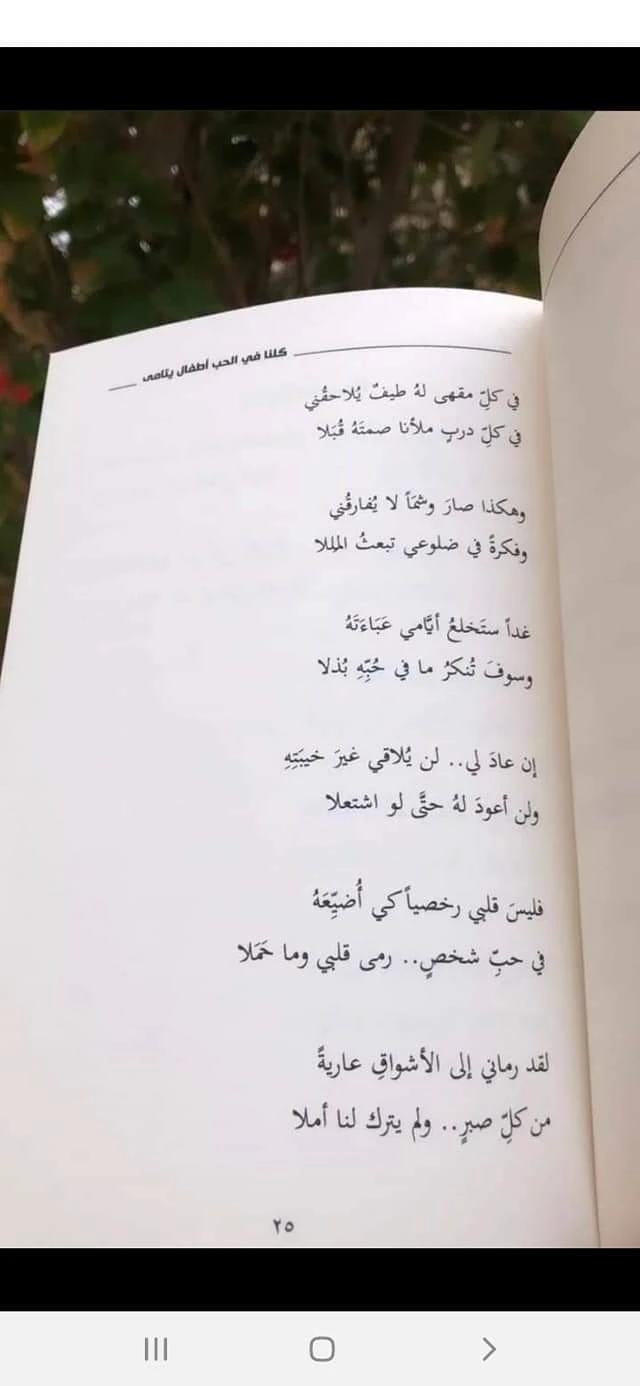 كلنا في الحب أطفال يتامى
في كلِّ مقهى لهُ طيفٌ يُلاحقُني
في كلِّ دربٍ ملأنا صمتَهُ قُبَلا
وهكذا صارَ وشمَاً لا يُفارقُني
وفكرةً في ضلوعي تبعثُ المللا
غداً ستَخلعُ أيَّامي عَبَاءَتَهُ
وسوفَ تُنكرُ ما في حُبِّهِ بُذلا
إن عادَ لي.. لن يُلاقي غيرَ خيبَتِهِ
ولن أعودَ لهُ حتَّى لو اشتعلا
فليسَ قلبي رخصياً كي أُضيِّعَهُ
في حبِّ شخصٍ.. رمى قلبي وما حَمَلا
لقد رماني إلى الأشواقِ عاريةً
من كلِّ صبرٍ.. ولم يترك لنا أملا
٢٥